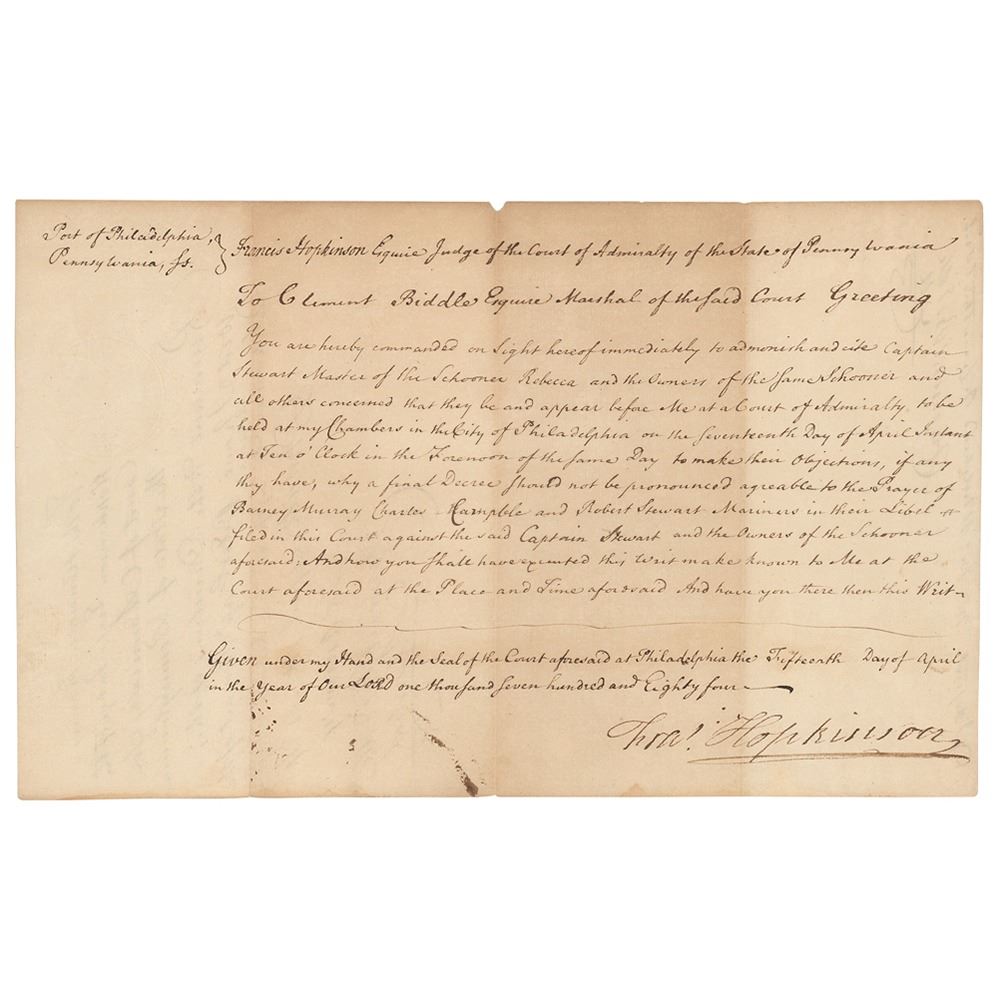 Port of Philadelphia,
Pennsylvania, ss.
Francis Hopkinson Esquire Judge of the Court of Admiralty of the State of Pennsylvania
To Clement Biddle Esquire Marshal of the said Court Greeting
You are hereby commanded on Sight hereof immediately to admonish and cite Captain
Stewart Master of the Schooner Rebecca and the Owners of the same Schooner and
all others concerned that they be and appear before Me at a Court of Admiralty, to be
held at my Chambers in the City of Philadelphia on the seventeenth Day of April Instant
at Ten o'Clock in the Forenoon of the same Day to make their Objections, if any
they have, why a final Decree should not be pronounced agreable to the Prayer of
Barney Murray Charles and Robert Stewart Mariners in their Libel
filed in this Court against the said Captain Stewart and the Owners of the Schooner
aforesaid; And how you shall have executed this Writ make known to Me at the
Court aforesaid at the Place and Time aforesaid And have you there then this Writ
Given under my Hand and the Seal of the Court aforesaid at Philadelphia the Fifteenth Day of April
in the Year of Our LORD one thousand seven hundred and Eighty four
Fras. Hopkinson